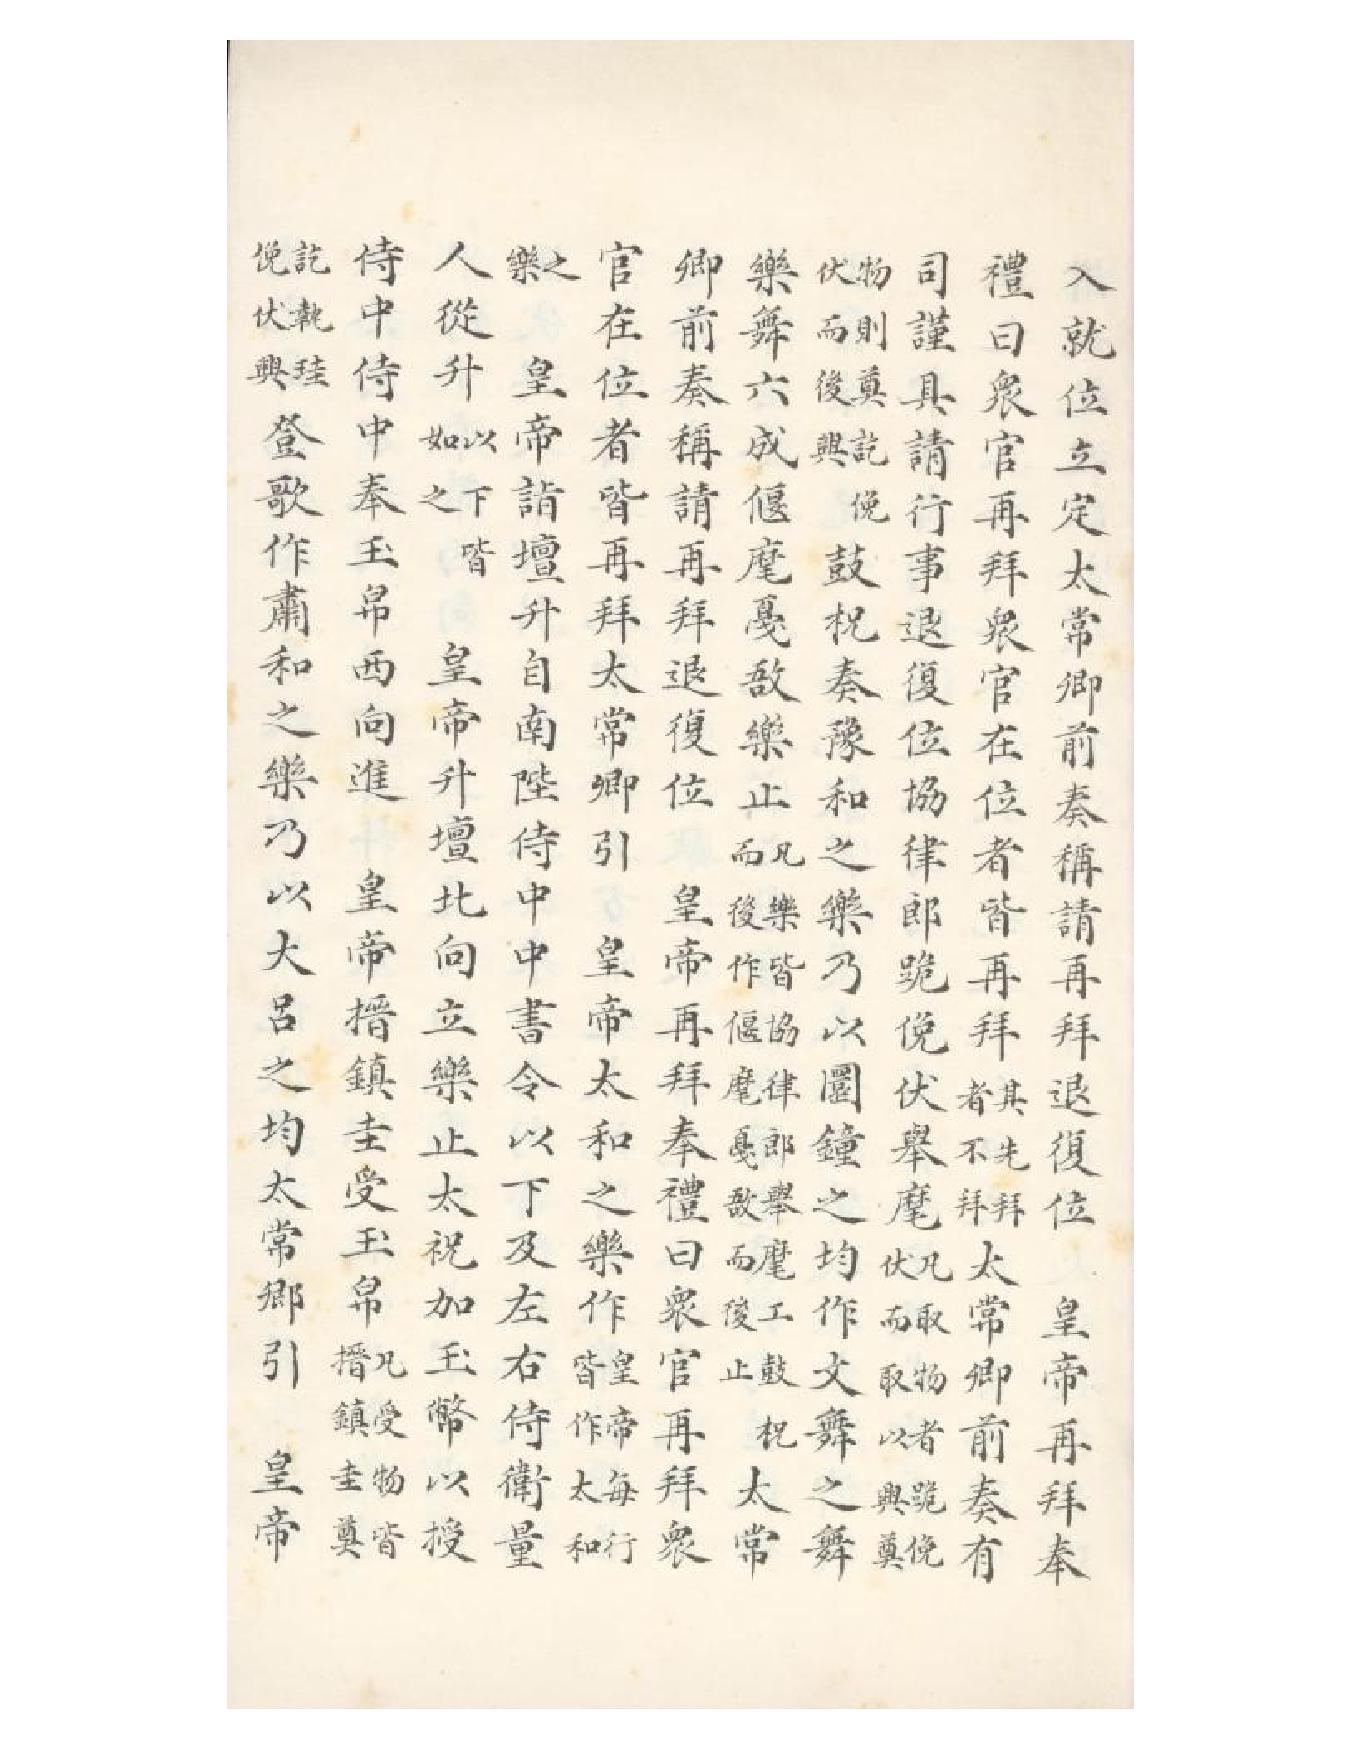 入就位立定太常卿前奏稱請再拜退復位　皇帝再拜奉
禮曰衆官再拜衆官在位者皆再拜其先拜者不拜太常卿前奏有
司謹具請行事退復位協律郎跪俛伏舉麾凡取物者跪俛伏而取以興奠
物則奠訖俛伏而後興鼓柷奏豫和之樂乃以圜鐘之均作文舞之舞
樂舞六成偃麾戞敔樂止凡樂皆協律郎舉麾工鼓柷而後作偃麾戞敔而後止太常
卿前奏稱請再拜退復位　皇帝再拜奉禮曰衆官再拜衆
官在位者皆再拜太常卿引　皇帝太和之樂作皇帝每行皆作太和
之樂　皇帝詣壇升自南陛侍中中書令以下及左右侍衛量
人從升以下皆如之　皇帝升壇北向立樂止太祝加玉幣以授
侍中侍中奉玉帛西向進　皇帝搢鎮圭受玉帛凡受物皆搢鎮圭奠
訖執珪俛伏興登歌作肅和之樂乃以大呂之均太常卿引　皇帝